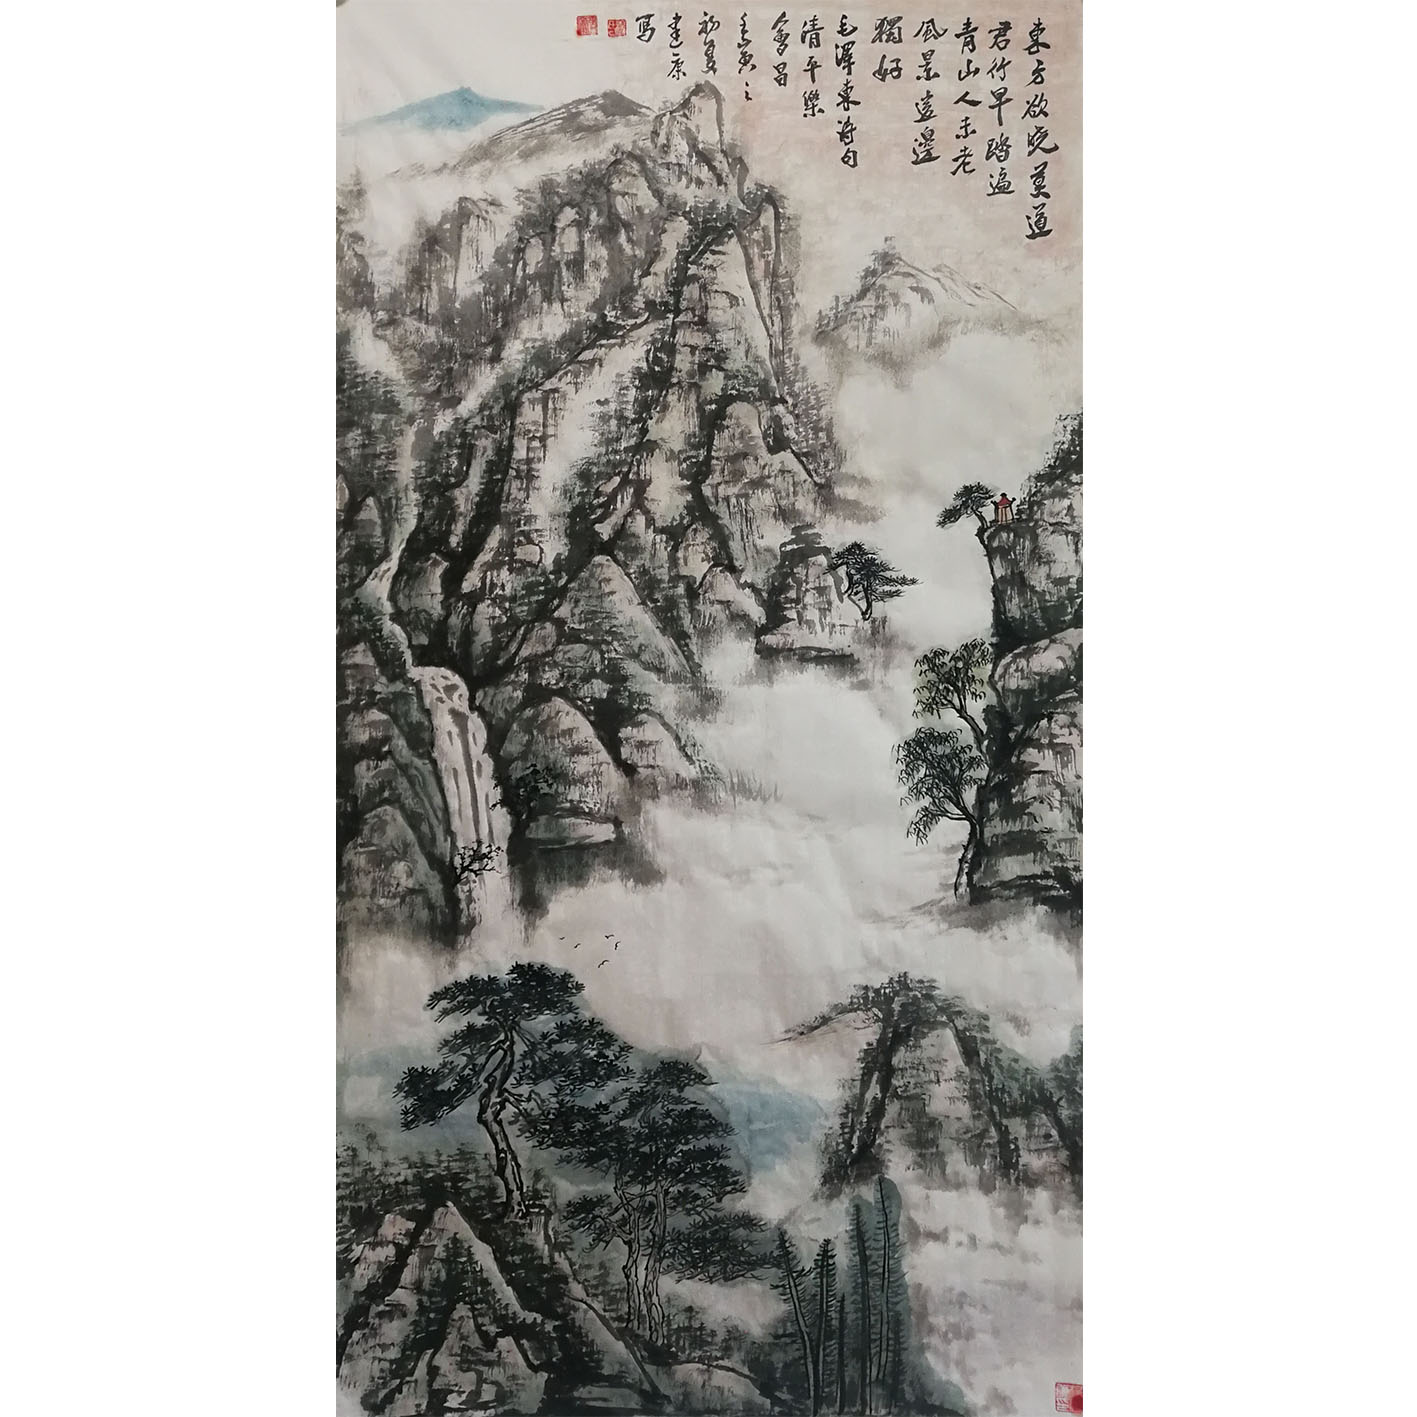 東方欲晓莫道
君行早踏遍
青山人未老
風景這邊
獨好
毛澤東詩句
清平樂
會昌
壬寅之
初夏
建康
写